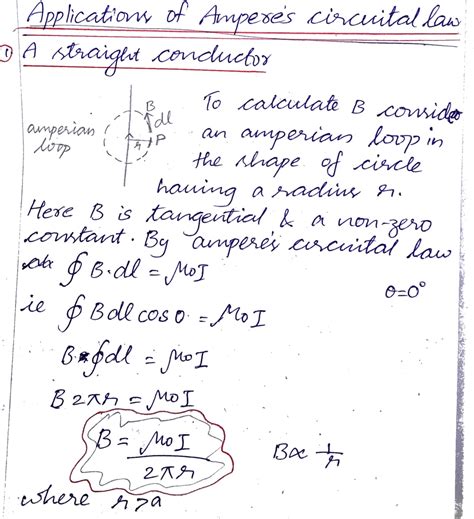 Applications of Ampere's circuital law
① A straight conductor
B
dl
P
r
amperian
loop
To calculate B consider
an amperian loop in
the shape of circle
having a radius r.
Here B is tangential & a non-zero
constant. By ampere's circuital law
∮ B·dl = μ₀I
θ=0°
ie ∮ B dl cos 0 = μ₀I
B ∮dl = μ₀I
B 2πr = μ₀I
B = μ₀I / 2πr
B ∝ 1/r
where r>a